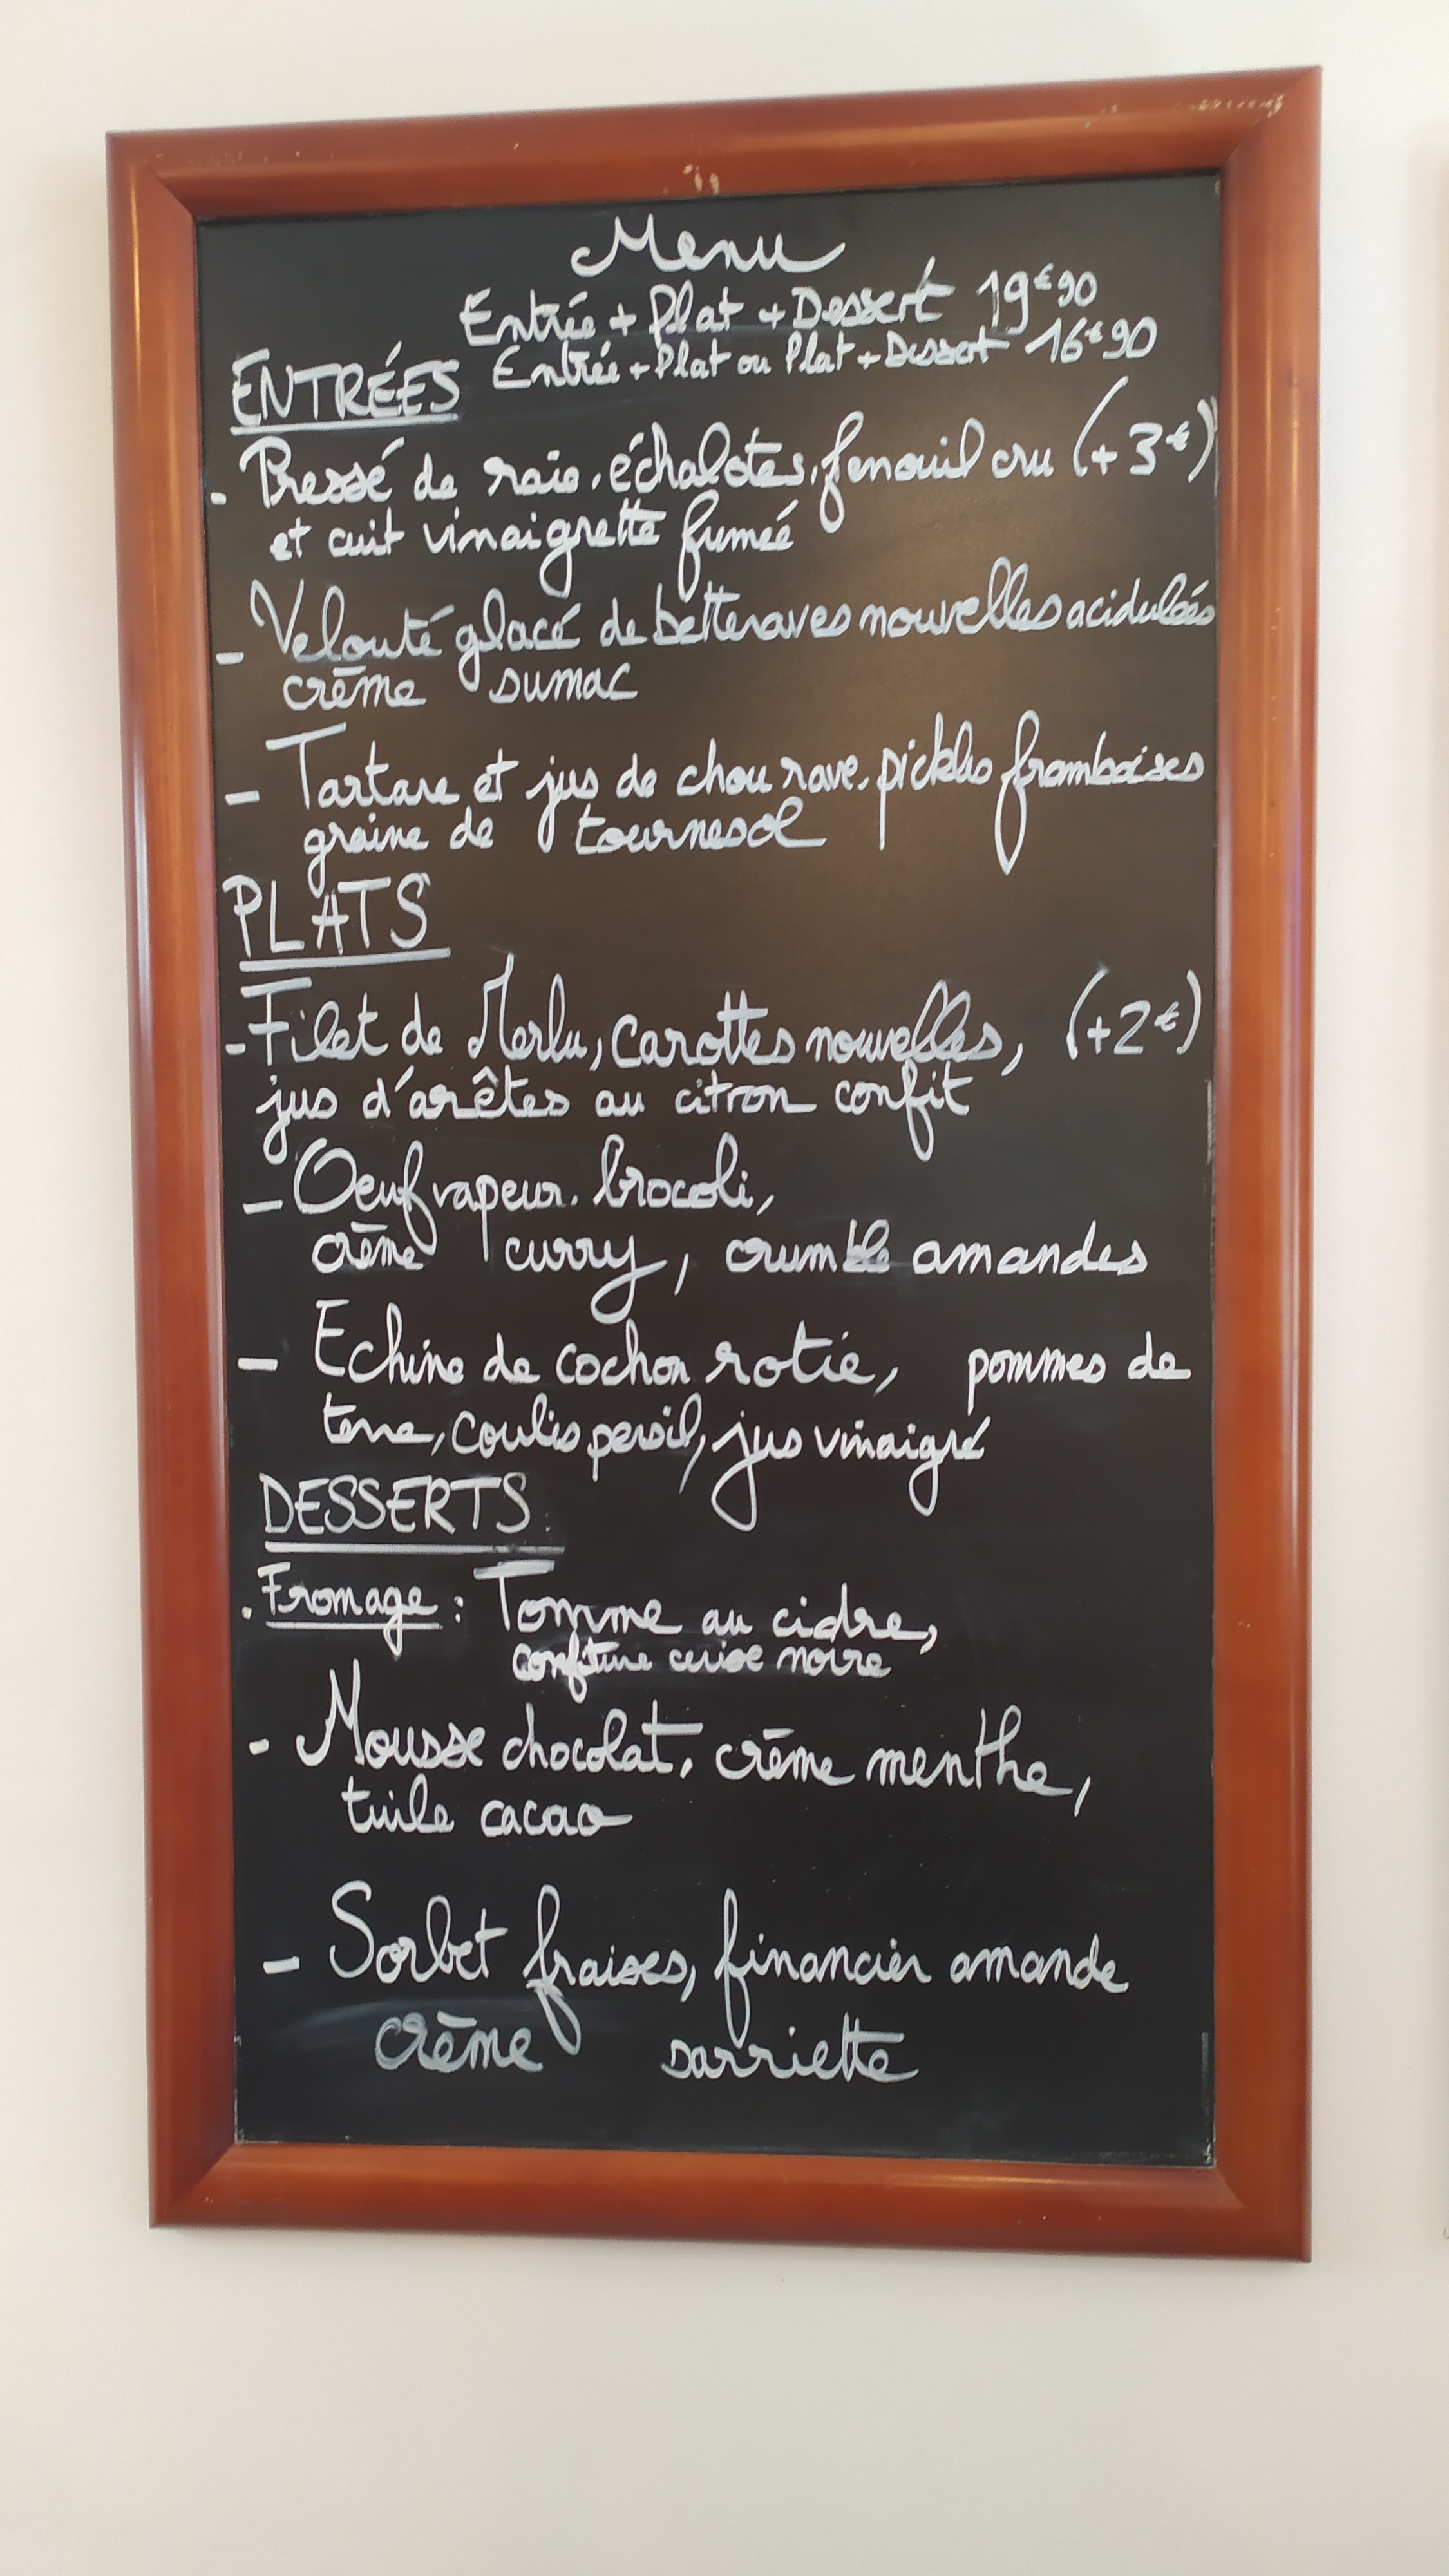 Menu
Entrée + Plat + Dessert 19€90
Entrée + Plat ou Plat + Dessert 16€90
ENTRÉES
. Pressé de raie, échalotes, fenouil cru (+3€)
et cuit vinaigrette fumée
- Velouté glacé de betteraves nouvelles acidulées
crème sumac
- Tartare et jus de chou rave, pickles framboises
graine de tournesol
PLATS
- Filet de Merlu, carottes nouvelles, (+2€)
jus d'arêtes au citron confit
- Oeuf vapeur. brocoli,
crème curry, crumble amandes
- Echine de cochon rotie, pommes de
terre, coulis persil, jus vinaigré
DESSERTS
. Fromage : Tomme au cidre,
confiture cerise noire
- Mousse chocolat, crème menthe,
tuile cacao
- Sorbet fraises, financier amande
crème sarriette